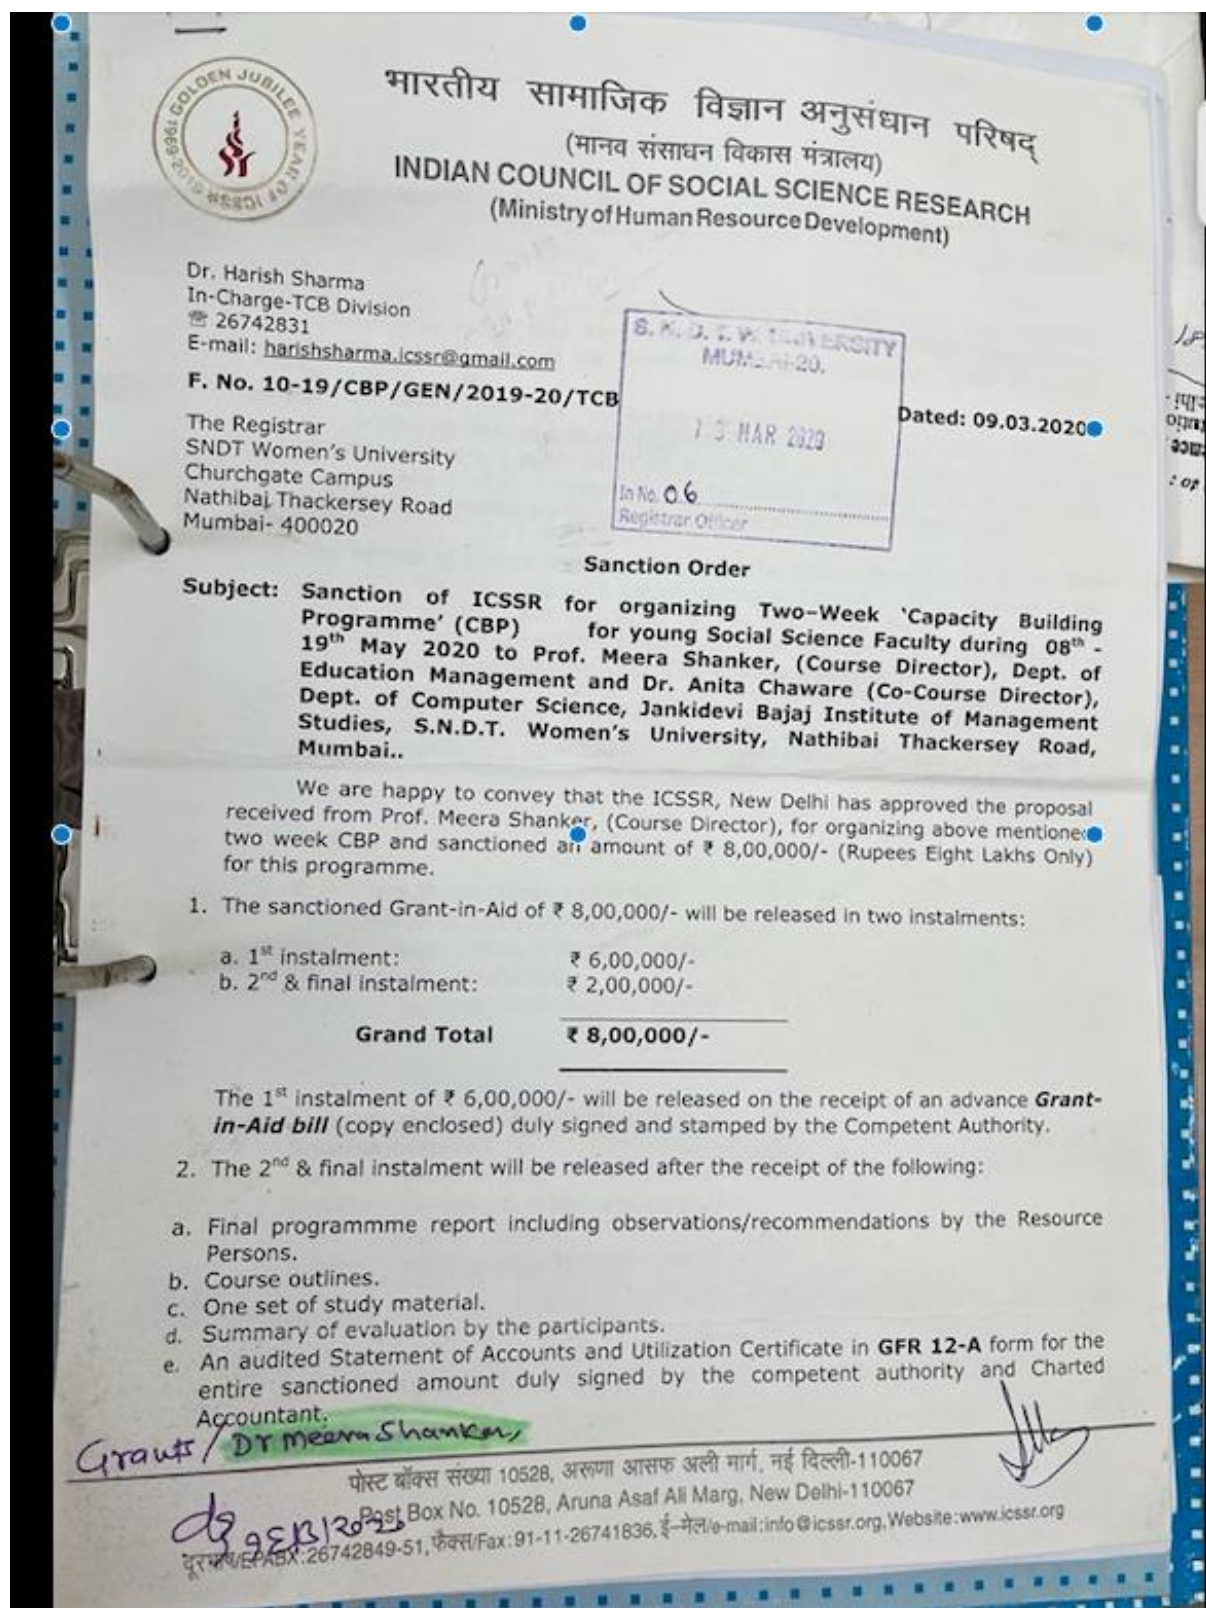 1969-2019 GOLDEN JUBILEE YEAR OF ICSSR
भारतीय सामाजिक विज्ञान अनुसंधान परिषद्
(मानव संसाधन विकास मंत्रालय)
INDIAN COUNCIL OF SOCIAL SCIENCE RESEARCH
(Ministry of Human Resource Development)
Dr. Harish Sharma
In-Charge-TCB Division
☎ 26742831
E-mail: harishsharma.icssr@gmail.com
F. No. 10-19/CBP/GEN/2019-20/TCB
Dated: 09.03.2020
S. N. D. T. W. UNIVERSITY
MUMBAI-20.
MAR 2020
In No. 06
Registrar Officer
The Registrar
SNDT Women's University
Churchgate Campus
Nathibai Thackersey Road
Mumbai- 400020
Sanction Order
Subject: Sanction of ICSSR for organizing Two–Week 'Capacity Building
Programme' (CBP) for young Social Science Faculty during 08th -
19th May 2020 to Prof. Meera Shanker, (Course Director), Dept. of
Education Management and Dr. Anita Chaware (Co-Course Director),
Dept. of Computer Science, Jankidevi Bajaj Institute of Management
Studies, S.N.D.T. Women's University, Nathibai Thackersey Road,
Mumbai..
We are happy to convey that the ICSSR, New Delhi has approved the proposal
received from Prof. Meera Shanker, (Course Director), for organizing above mentioned
two week CBP and sanctioned an amount of ₹ 8,00,000/- (Rupees Eight Lakhs Only)
for this programme.
1. The sanctioned Grant-in-Aid of ₹ 8,00,000/- will be released in two instalments:
a. 1st instalment: ₹ 6,00,000/-
b. 2nd & final instalment: ₹ 2,00,000/-
Grand Total ₹ 8,00,000/-
The 1st instalment of ₹ 6,00,000/- will be released on the receipt of an advance Grant-
in-Aid bill (copy enclosed) duly signed and stamped by the Competent Authority.
2. The 2nd & final instalment will be released after the receipt of the following:
a. Final programmme report including observations/recommendations by the Resource
Persons.
b. Course outlines.
c. One set of study material.
d. Summary of evaluation by the participants.
e. An audited Statement of Accounts and Utilization Certificate in GFR 12-A form for the
entire sanctioned amount duly signed by the competent authority and Charted
Accountant.
Grants / Dr Meera Shanker,
पोस्ट बॉक्स संख्या 10528, अरूणा आसफ अली मार्ग, नई दिल्ली-110067
Post Box No. 10528, Aruna Asaf Ali Marg, New Delhi-110067
दूरभाष/EPABX:26742849-51, फैक्स/Fax:91-11-26741836, ई-मेल/e-mail:info@icssr.org, Website:www.icssr.org